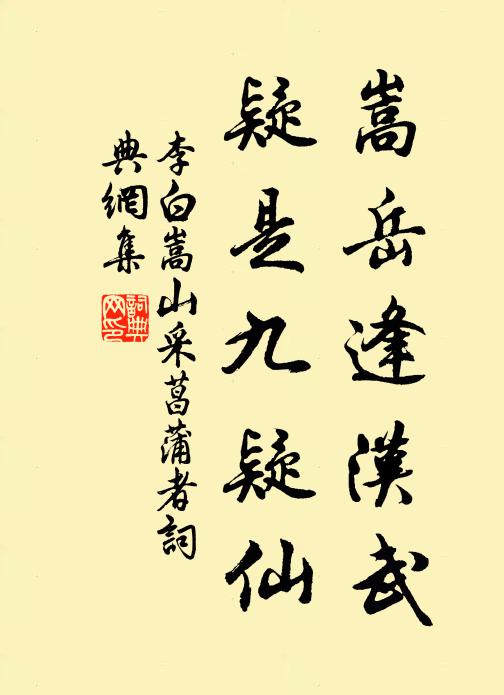 嵩岳逢漢武
疑是九疑仙
李白嵩山采菖蒲者詞
典網集
詞典网印